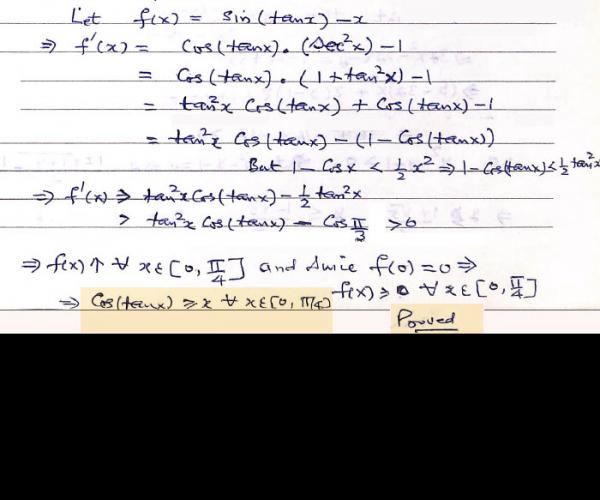 Let f(x) = sin(tanx) - x
⇒ f'(x) = Cos(tanx). (Sec²x) - 1
= Cos(tanx). (1 + tan²x) - 1
= tan²x Cos(tanx) + Cos(tanx) - 1
= tan²x Cos(tanx) - (1 - Cos(tanx))
But 1 - Cosx < ½ x² ⇒ 1 - Cos(tanx) < ½ tan²x
⇒ f'(x) > tan²x Cos(tanx) - ½ tan²x
> tan²x Cos(tanx) - Cos π/3 > 0
⇒ f(x) ↑ ∀ x ∈ [0, π/4] and since f(0) = 0 ⇒
f(x) ≥ 0 ∀ x ∈ [0, π/4]
⇒ Cos(tanx) ≥ x ∀ x ∈ [0, π/4]
Proved